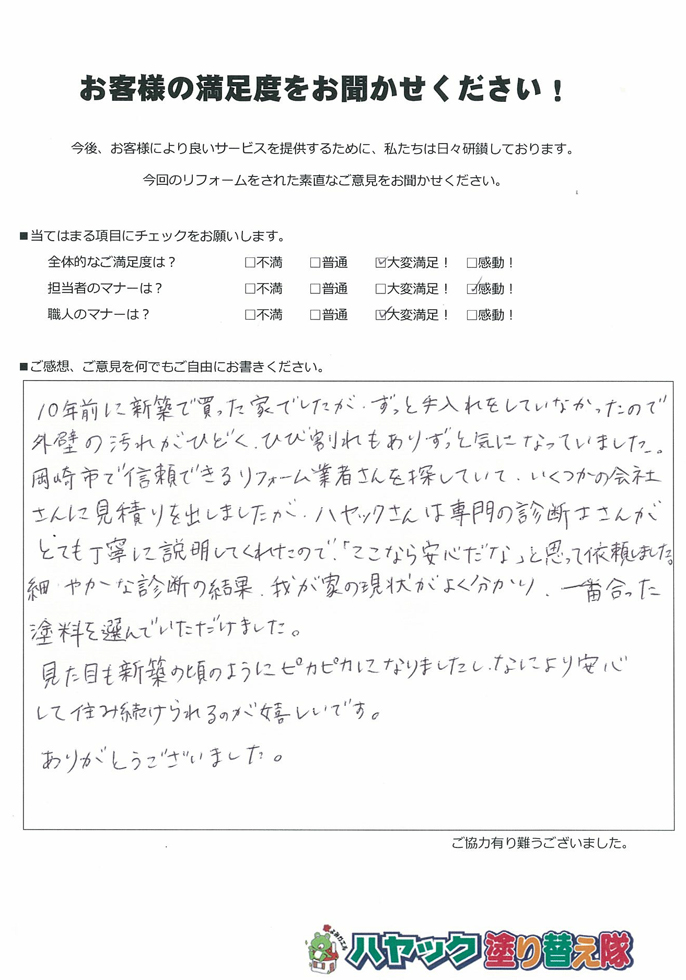 お客様の満足度をお聞かせください！
今後、お客様により良いサービスを提供するために、私たちは日々研鑚しております。
今回のリフォームをされた素直なご意見をお聞かせください。
■当てはまる項目にチェックをお願いします。
全体的なご満足度は？ □不満 □普通 ☑大変満足！ □感動！
担当者のマナーは？ □不満 □普通 □大変満足！ ☑感動！
職人のマナーは？ □不満 □普通 ☑大変満足！ □感動！
■ご感想、ご意見を何でもご自由にお書きください。
10年前に新築で買った家でしたが、ずっと手入れをしていなかったので
外壁の汚れがひどく、ひび割れもありずっと気になっていました。
岡崎市で信頼できるリフォーム業者さんを探していて、いくつかの会社
さんに見積りを出しましたが、ハヤックさんは専門の診断士さんが
とても丁寧に説明してくれたので、「ここなら安心だな」と思って依頼しました。
細やかな診断の結果、我が家の現状がよく分かり、一番合った
塗料を選んでいただけました。
見た目も新築の頃のようにピカピカになりましたし、なにより安心
して住み続けられるのが嬉しいです。
ありがとうございました。
ご協力有り難うございました。
ハヤック塗り替え隊